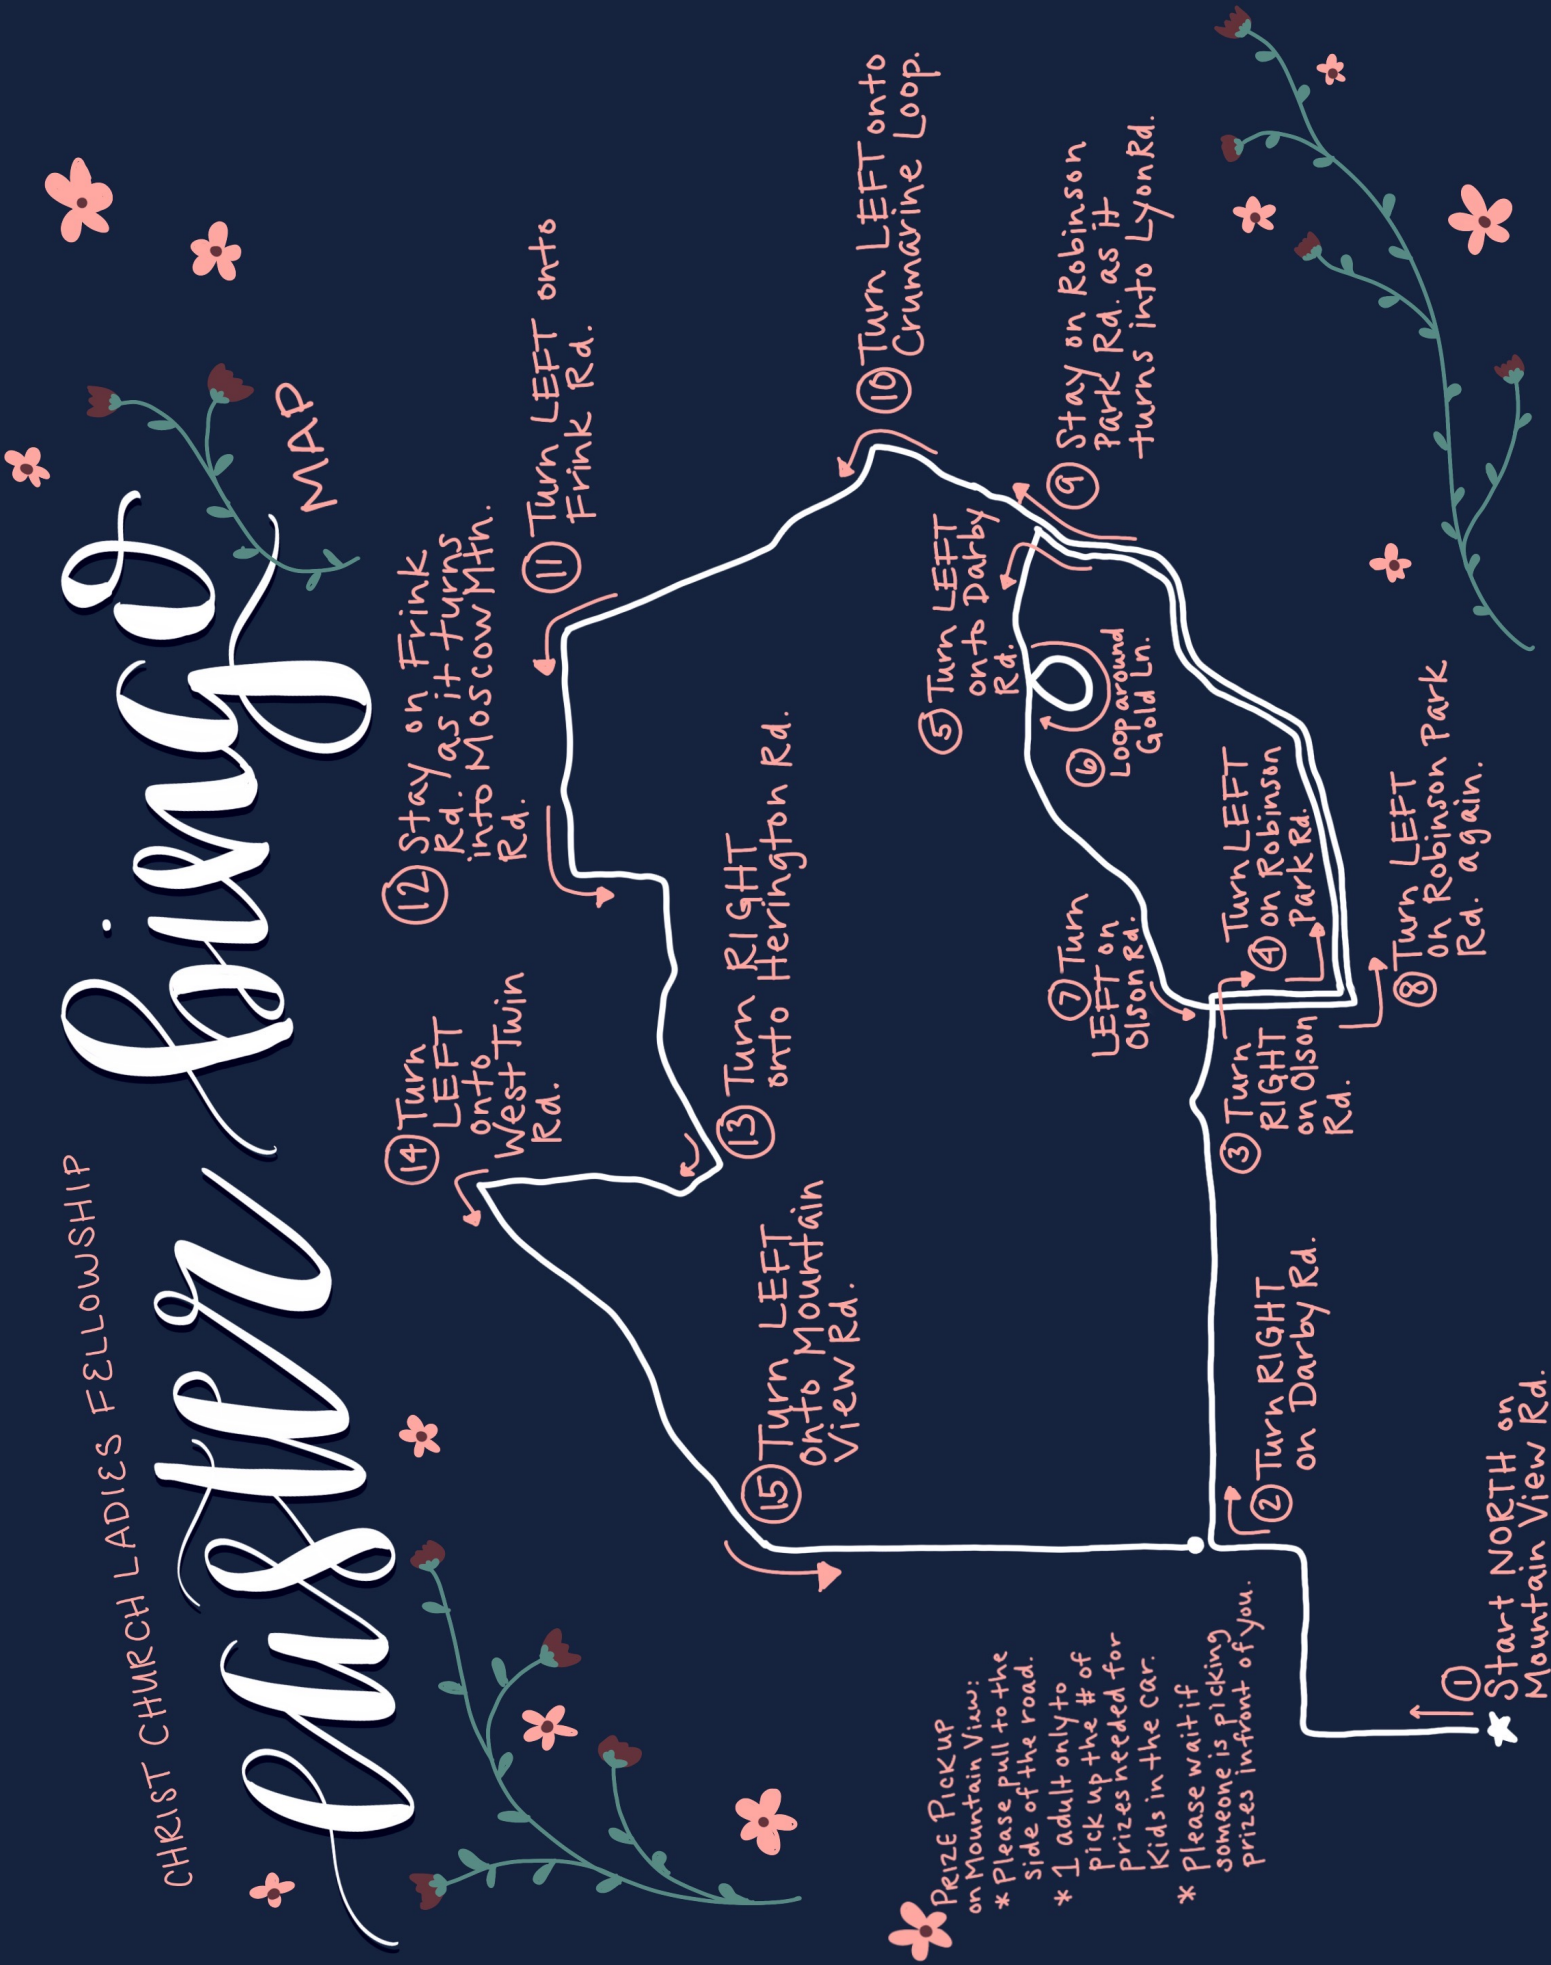 CHRIST CHURCH LADIES FELLOWSHIP
Easter bingo
MAP
① Start NORTH on
Mountain View Rd.
② Turn RIGHT
on Darby Rd.
③ Turn
RIGHT
on Olson
Rd.
④ Turn LEFT
on Robinson
Park Rd.
⑤ Turn LEFT
onto Darby
Rd.
⑥ Loop around
Gold Ln.
⑦ Turn
LEFT on
Olson Rd.
⑧ Turn LEFT
on Robinson Park
Rd. again.
⑨ Stay on Robinson
Park Rd. as it
turns into Lyon Rd.
⑩ Turn LEFT onto
Crumarine Loop.
⑪ Turn LEFT onto
Frink Rd.
⑫ Stay on Frink
Rd. as it turns
into Moscow Mtn.
Rd.
⑬ Turn RIGHT
onto Herington Rd.
⑭ Turn
LEFT
onto
West Twin
Rd.
⑮ Turn LEFT
onto Mountain
View Rd.
PRIZE PICKUP
on Mountain View:
* Please pull to the
side of the road.
* 1 adult only to
pick up the # of
prizes needed for
kids in the car.
* Please wait if
someone is picking
prizes infront of you.